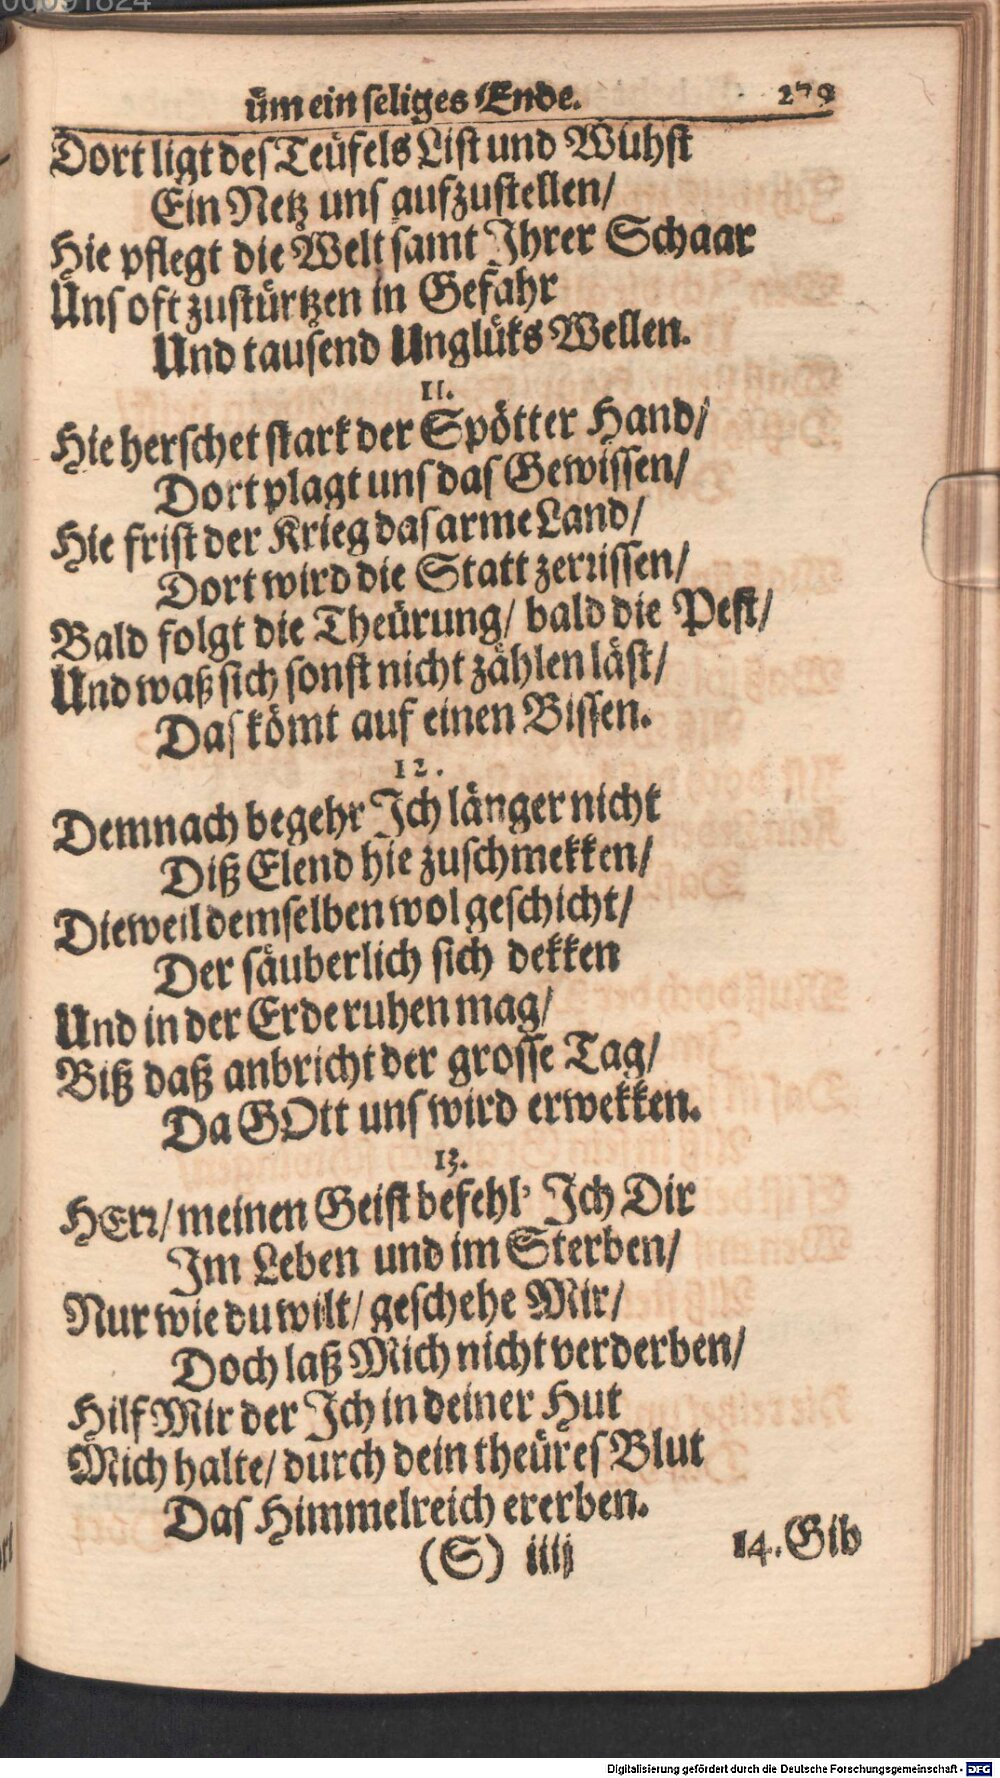 üm ein seliges Ende. 279
Dort ligt des Teüfels List und Wuhst
Ein Netz uns aufzustellen/
Hie pflegt die Welt samt Jhrer Schaar
Uns oft zustürtzen in Gefahr
Und tausend Unglüks Wellen.
11.
Hie herschet stark der Spötter Hand/
Dort plagt uns das Gewissen/
Hie frist der Krieg das arme Land/
Dort wird die Statt zerrissen/
Bald folgt die Theürung/ bald die Pest/
Und waß sich sonst nicht zählen läst/
Das kömt auf einen Bissen.
12.
Demnach begehr Jch länger nicht
Diß Elend hie zuschmekken/
Dieweil demselben wol geschicht/
Der säuberlich sich dekken
Und in der Erde ruhen mag/
Biß daß anbricht der grosse Tag/
Da GOtt uns wird erwekken.
13.
HErr/ meinen Geist befehl' Jch Dir
Jm Leben und im Sterben/
Nur wie du wilt/ geschehe Mir/
Doch laß Mich nicht verderben/
Hilf Mir der Jch in deiner Hut
Mich halte/ durch dein theüres Blut
Das Himmelreich ererben.
(S) iiij 14. Gib
Digitalisierung gefördert durch die Deutsche Forschungsgemeinschaft - DFG